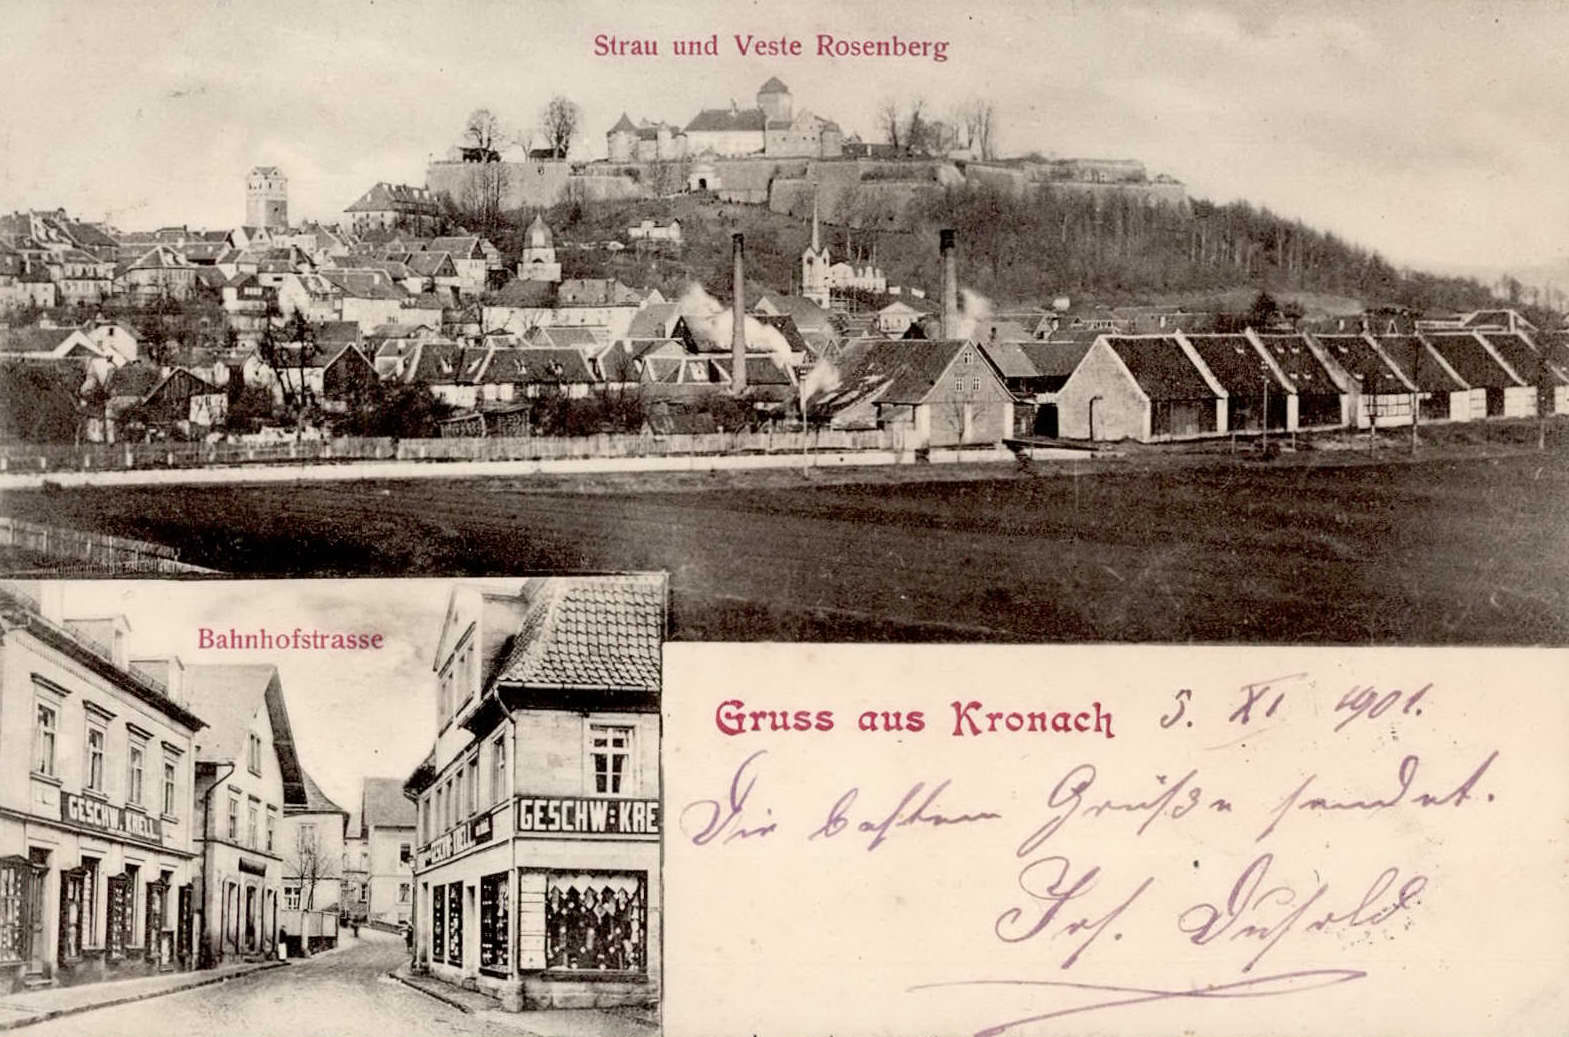 Strau und Veste Rosenberg
Bahnhofstrasse
GESCHW. KNELL.
GESCHW: KNELL
GESCHW: KRE
Gruss aus Kronach 5. XI 1901.
Die besten Grüße sendet.
Jos.